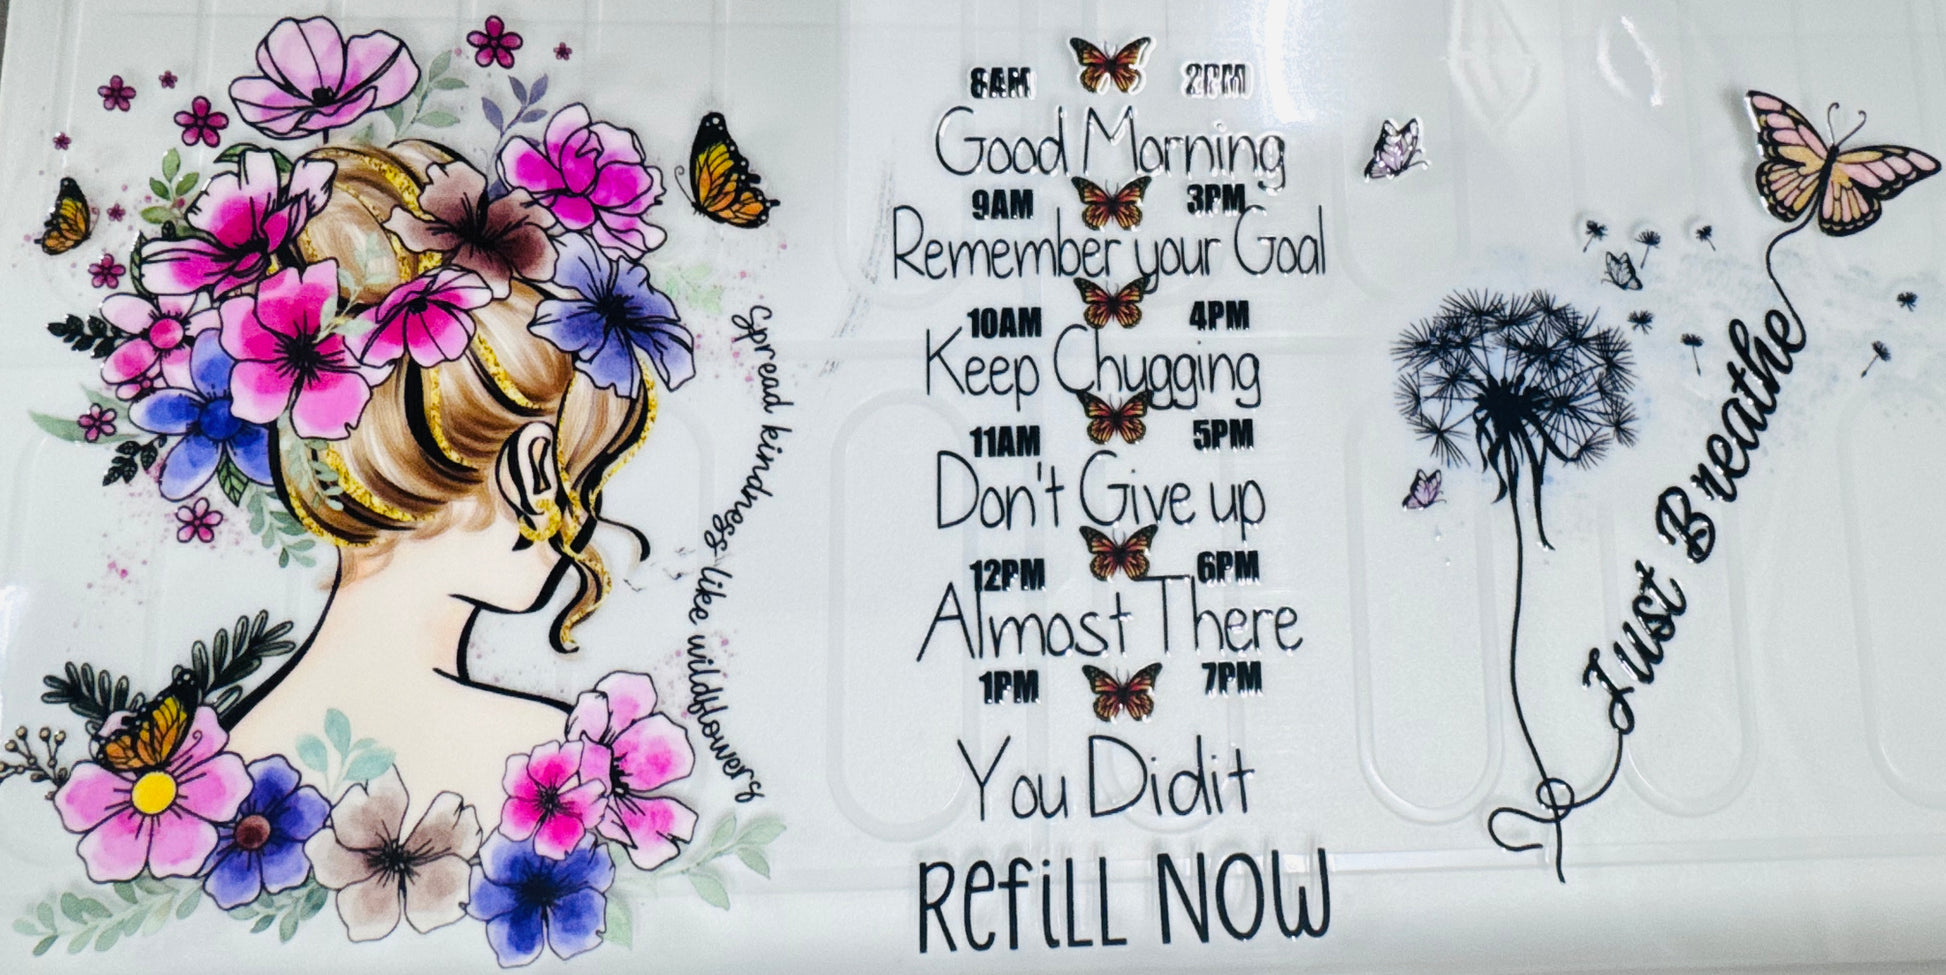 Spread kindness like wildflowers
8AM 2PM
Good Morning
9AM 3PM
Remember your Goal
10AM 4PM
Keep Chugging
11AM 5PM
Don't Give up
12PM 6PM
Almost There
1PM 7PM
You Did it
Refill NOW
Just Breathe